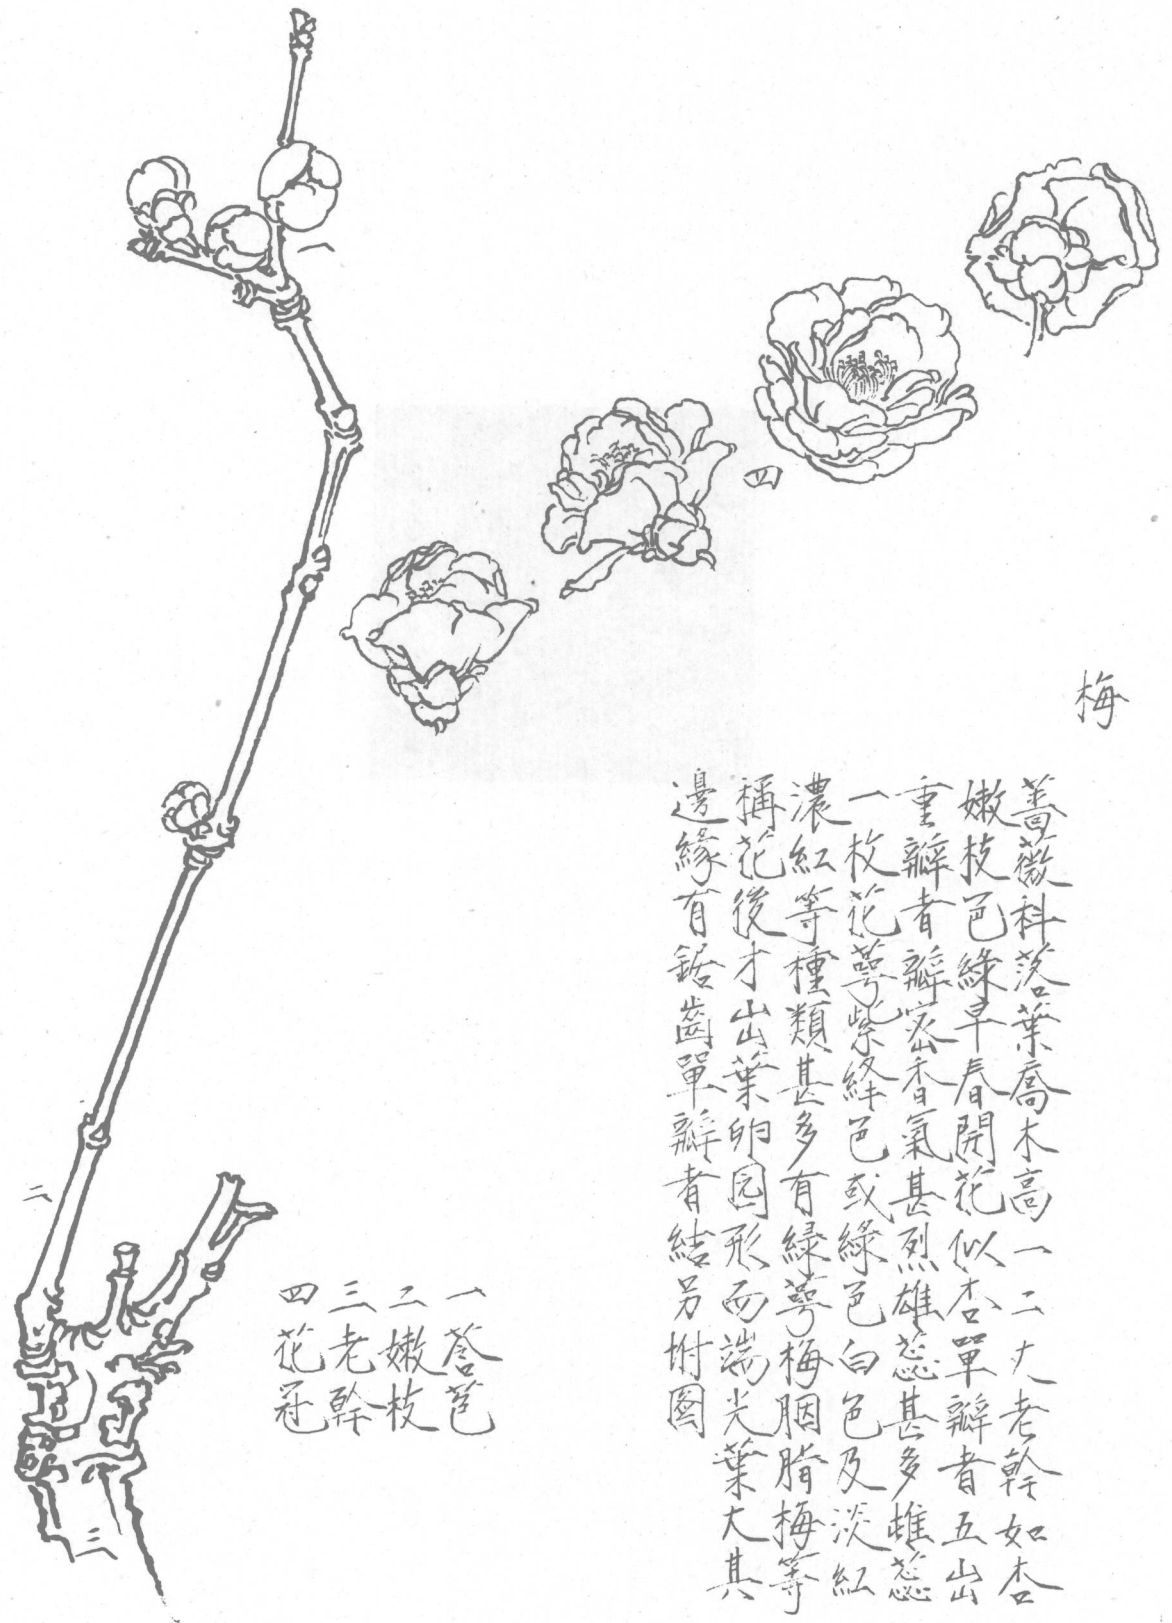 梅
薔薇科落葉喬木高一二丈老幹如杏
嫩枝色綠早春開花似杏單瓣者五出
重瓣者瓣密香氣甚烈雄蕊甚多雌蕊
一枚花萼紫絳色或綠色白色及淡紅
濃紅等種類甚多有緑萼梅胭脂梅等
稱花後才出葉卵园形而端尖葉大其
邊緣有鋸齒單瓣者結另坿圖
一
四
二
三
一蓇苞
二嫩枝
三老幹
四花冠